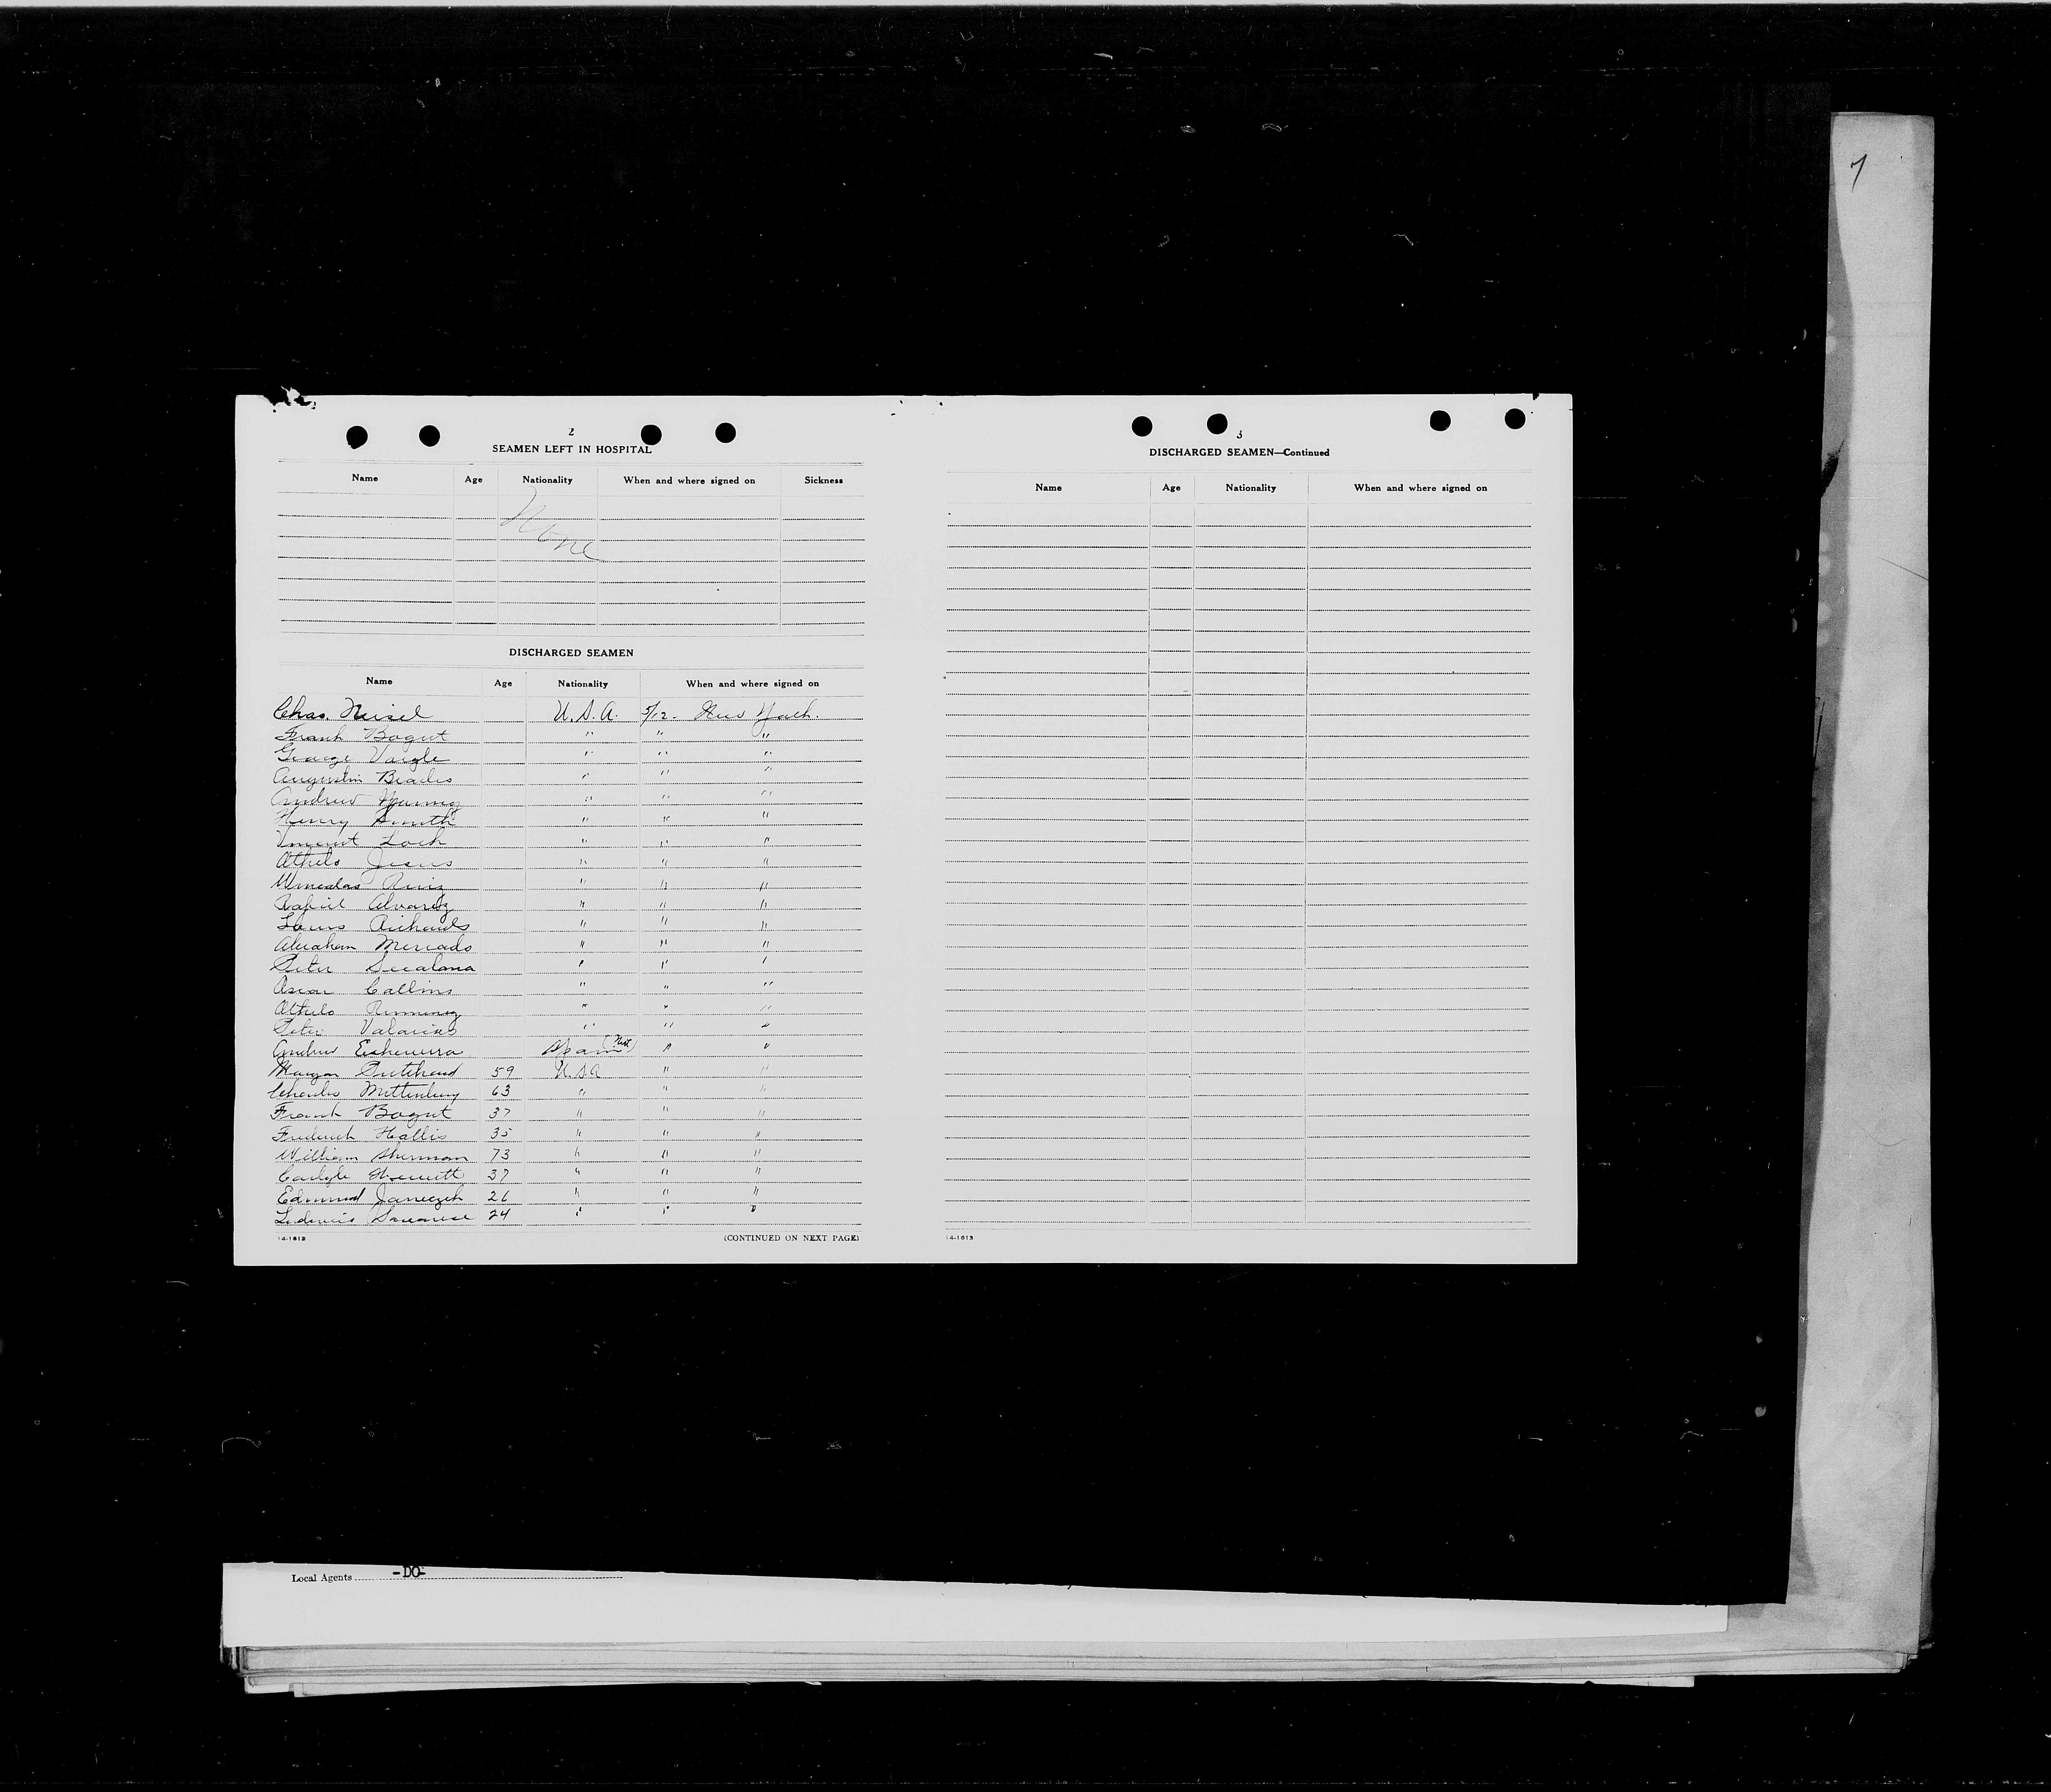 7
2
SEAMEN LEFT IN HOSPITAL
Name Age Nationality When and where signed on Sickness
None
DISCHARGED SEAMEN
Name Age Nationality When and where signed on
Chas. Neisel U.S.A. 5/12- New York.
Frank Bogut " " "
George Vargle " " "
Augustin " " "
Andrew " " "
Henry Smith " " "
Vincent Loch " " "
Athelo Jesus " " "
Ruiz " " "
Rafiel Alvarez " " "
Louis Richards " " "
Abraham Mercado " " "
Peter " " "
Oscar Callins " " "
Athelo " " "
Peter " " "
Andrew Echeverra Spain " "
Morgan Pritchard 59 U.S.A " "
Charles Mittenburg 63 " " "
Frank Bogut 37 " " "
Frederick Hallis 35 " " "
William Sherman 73 " " "
Carlyle 37 " " "
Edmund Janeczek 26 " " "
24 " " "
14-1613 (CONTINUED ON NEXT PAGE)
3
DISCHARGED SEAMEN—Continued
Name Age Nationality When and where signed on
14-1613
Local Agents -DO-